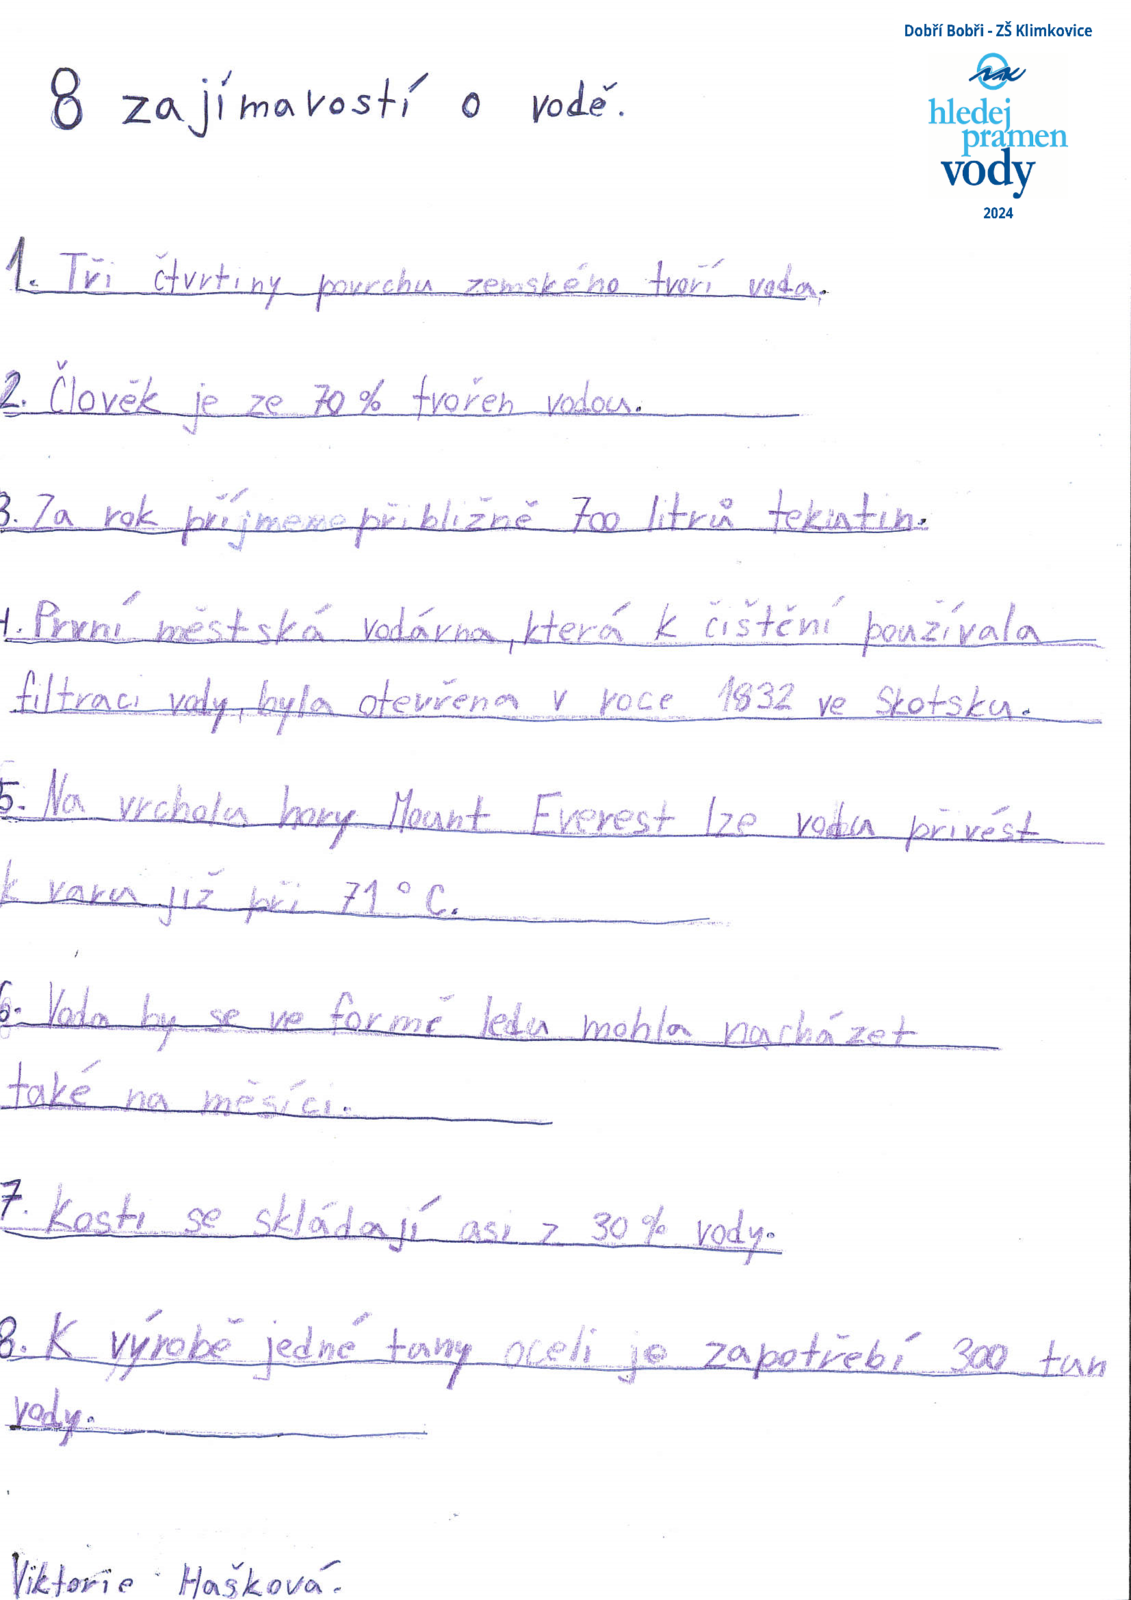 Dobří Bobři - ZŠ Klimkovice
hledej
pramen
vody
2024
8 zajímavostí o vodě.
1. Tři čtvrtiny povrchu zemského tvoří voda.
2. Člověk je ze 70% tvořen vodou.
3. Za rok příjmeme přibližně 700 litrů tekutin.
4. První městská vodárna, která k čištění používala
filtraci vody, byla otevřena v roce 1832 ve Skotsku.
5. Na vrcholu hory Mount Everest lze vodu přivést
k varu již při 71°C.
6. Voda by se ve formě ledu mohla nacházet
také na měsíci.
7. Kosti se skládají asi z 30% vody.
8. K výrobě jedné tuny oceli je zapotřebí 300 tun
vody.
Viktorie Hašková.